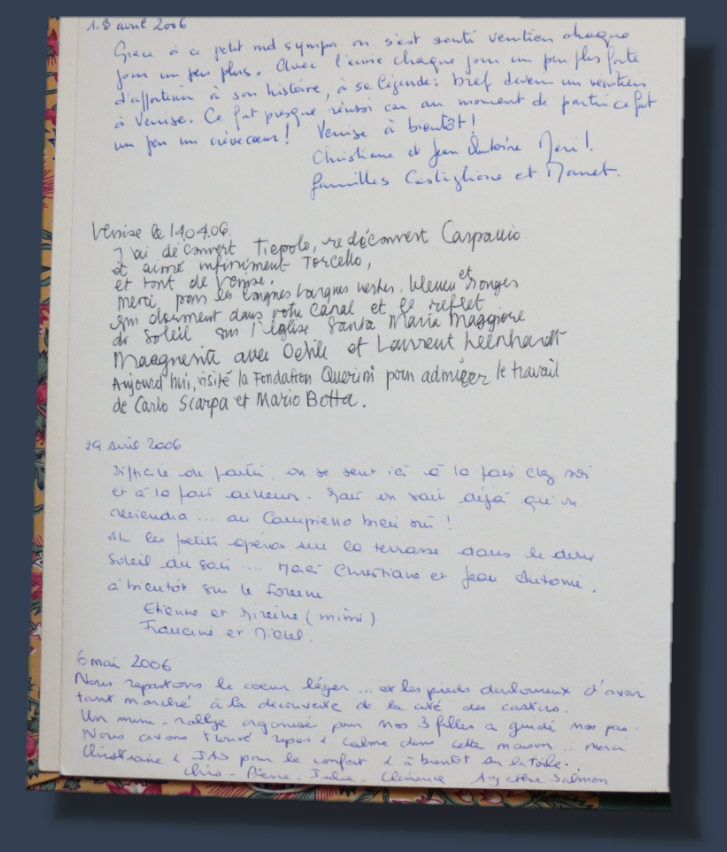 1-8 avril 2006
Grâce à ce petit nid sympa on s'est senti vénitien chaque
jour un peu plus. Avec l'envie chaque jour un peu plus forte
d'appartenir à son histoire, à sa légende : bref devenir un vénitien
à Venise. Ce fut presque réussi car au moment de partir ce fut
un peu un crève cœur ! Venise à bientôt !
Christiane et Jean Antoine Merci !.
familles Castiglione et Manet.
Venise le 14.04.06.
J'ai découvert Tiepolo, redécouvert Carpaccio
et aimé infiniment Torcello,
et tout de Venise.
merci pour les longues barques vertes, bleues et rouges
qui dorment dans votre canal et le reflet
du soleil sur l'église Santa Maria Maggiore
avec Odile et Laurent Leenhardt
Aujourd'hui, visité la Fondation Querini pour admirer le travail
de Carlo Scarpa et Mario Botta.
29 avril 2006
Difficile de partir, on se sent ici à la fois chez soi
et à la fois ailleurs. Mais on sait déjà qu'on
reviendra ... au Campiello bien sûr !
Ah les petits apéros sur la terrasse dans le doux
soleil du soir ... Merci Christiane et Jean Antoine.
à bientôt sur le forum
Etienne et Mireine (mimi)
Francine et Michel.
6 mai 2006
Nous repartons le coeur léger ... et les pieds douloureux d'avoir
tant marché à la découverte de la cité des castors.
Un mini-rallye organisé pour nos 3 filles a guidé nos pas.
Nous avons trouvé repos & calme dans cette maison ... merci
Christiane & JAS pour le confort & à bientôt sur la toile.
Chris - Pierre - Julie - Clémence Agathe Salmon